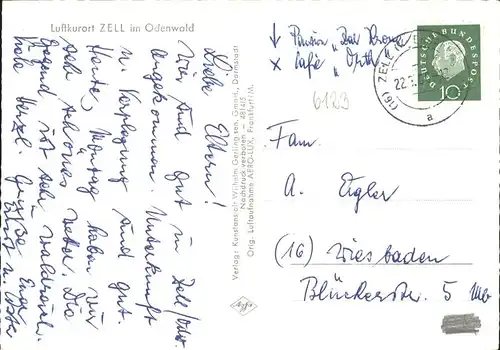 Luftkurort ZELL im Odenwald
Liebe Eltern!
Wir sind gut in Zell/Odw.
angekommen. Unterkunft
u. Verpflegung sind gut.
Heute, Montag haben wir
sehr schönes Wetter. Die
Gegend ist sehr waldreich.
Herzl. Grüße Eure
Verlag: Kunstanstalt Wilhelm Gerling sen. GmbH., Darmstadt
Nachdruck verboten - 481415
Orig. Luftaufnahme AERO-LUX, Frankfurt/M.
Agfa
↓ Pension „Zur Krone"
x Café „Orth"
6123
(16) ZELL
22.
a
DEUTSCHE BUNDESPOST
10
Fam.
A. Eigler
(16) Wiesbaden
Blückerstr. 5